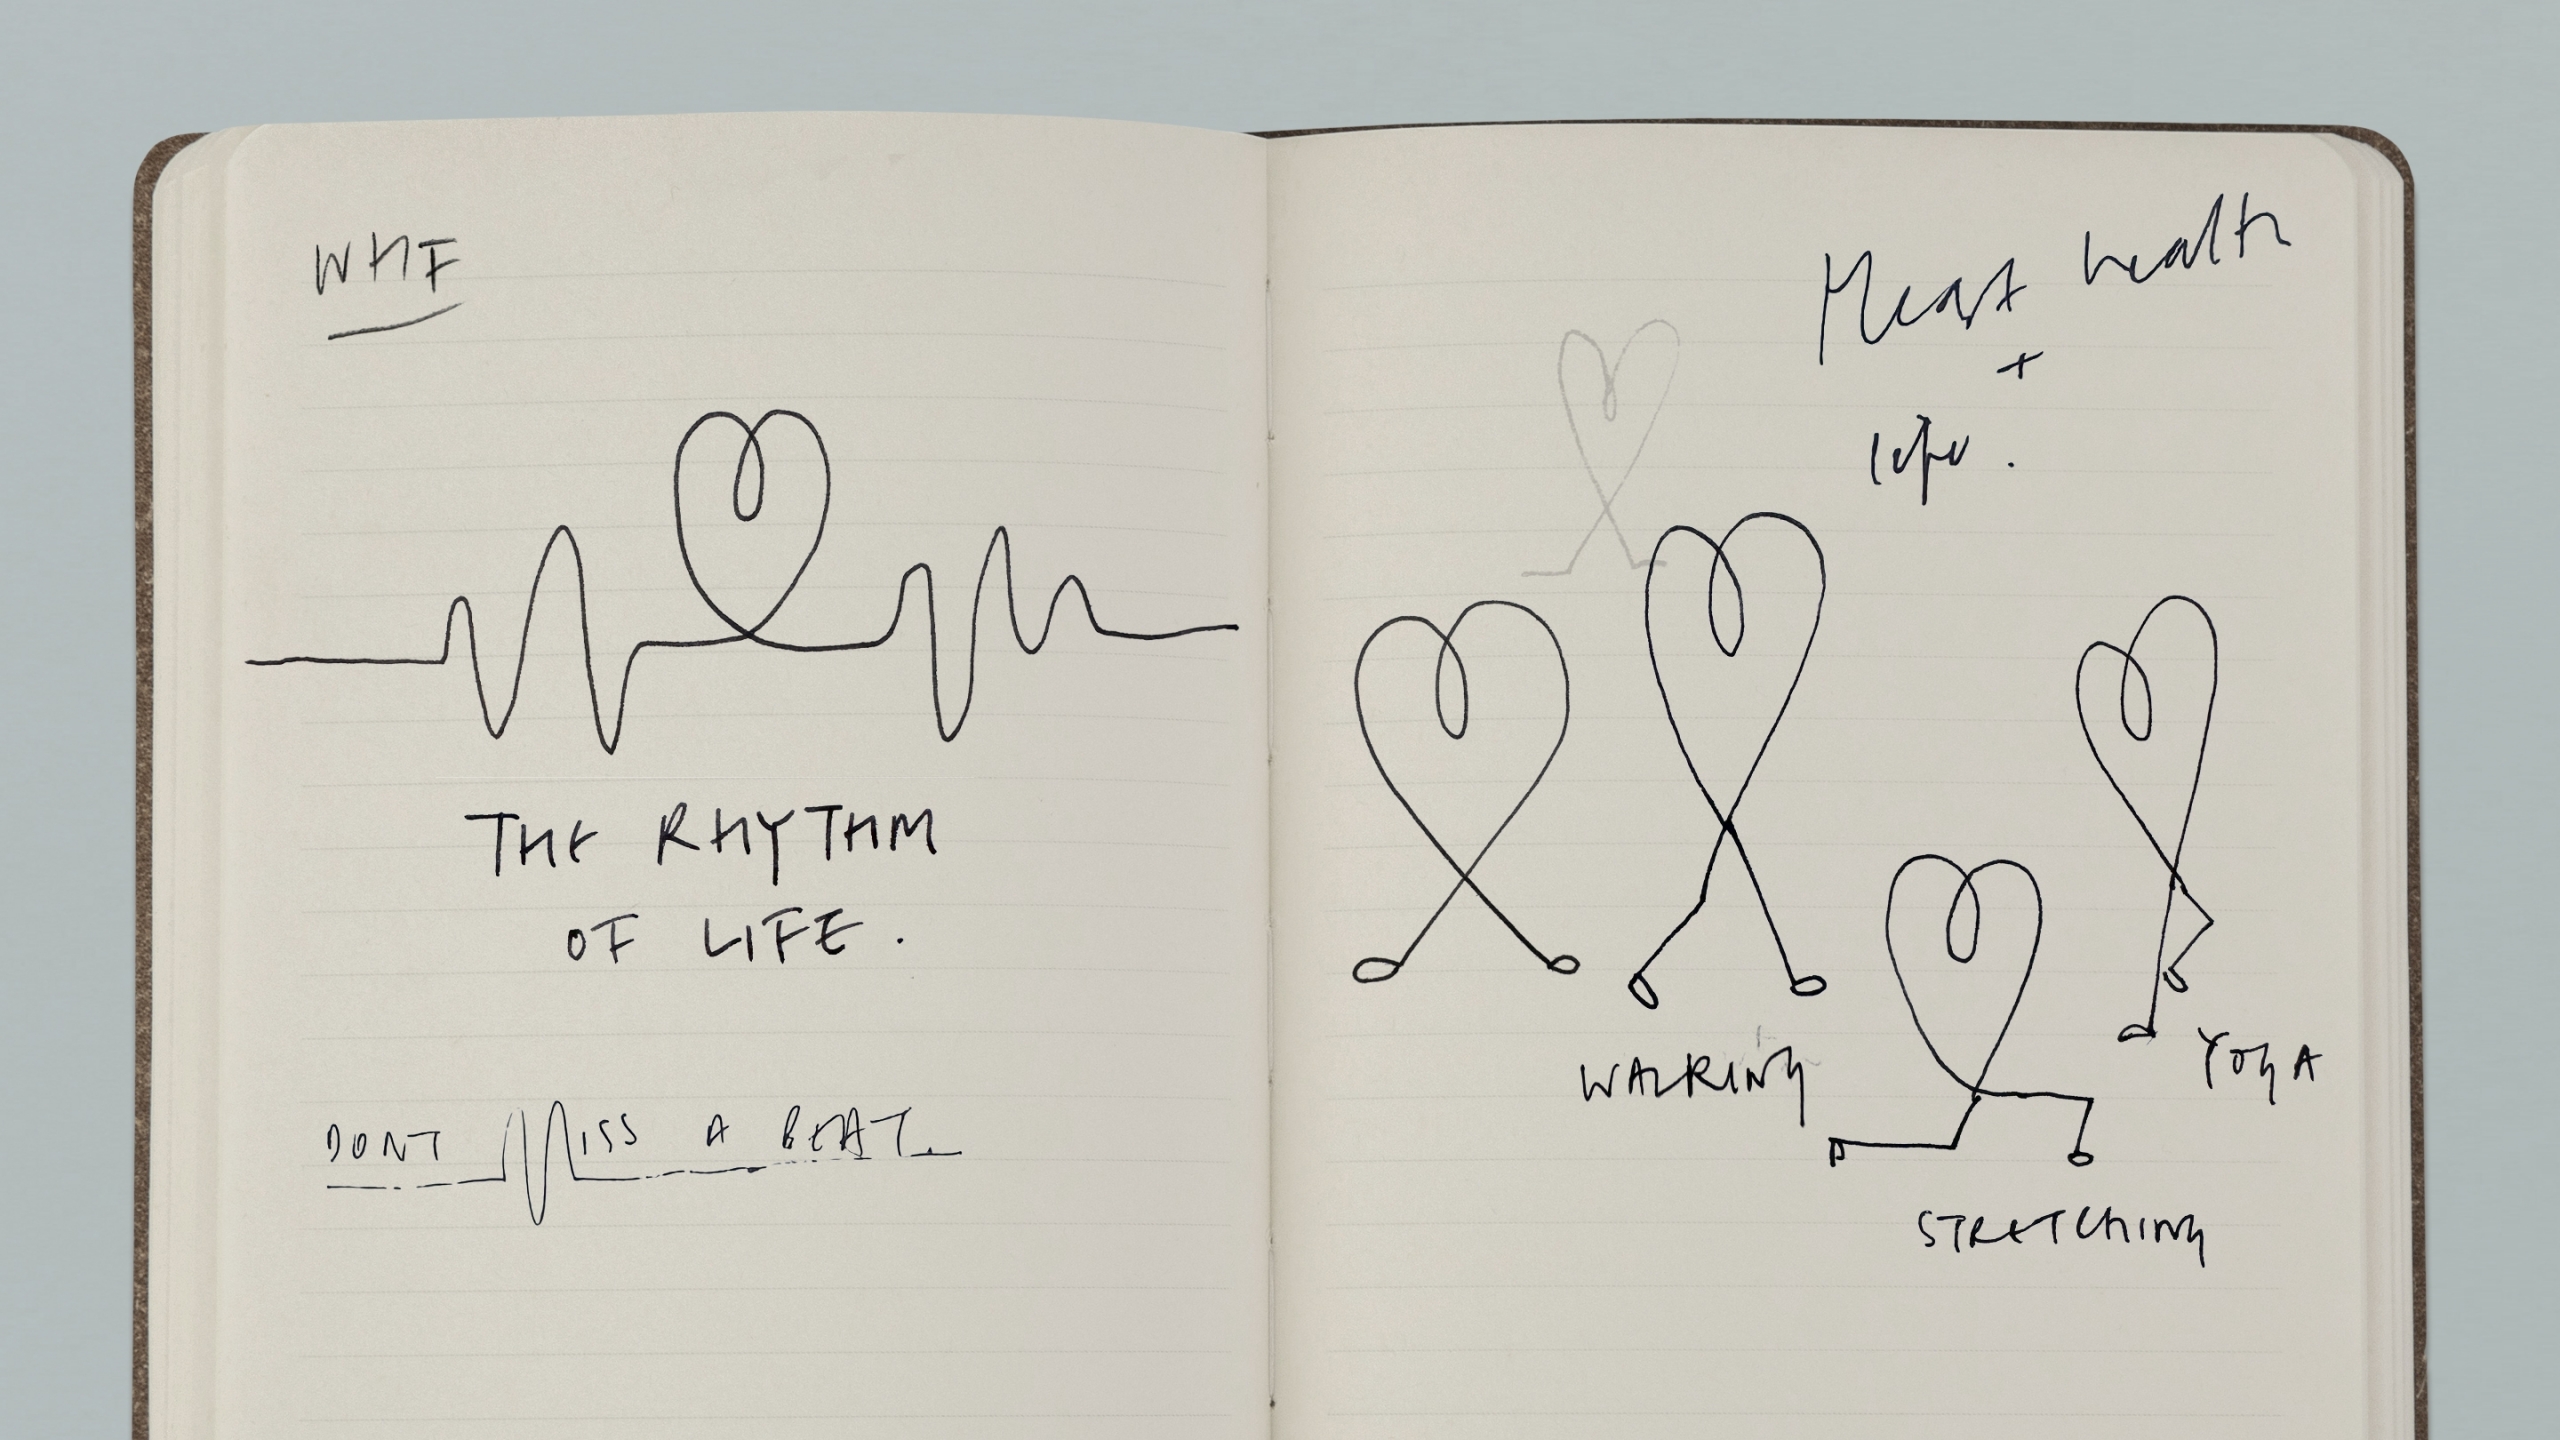 WHF
THE RHYTHM
OF LIFE.
DONT MISS A BEAT.
Heart health
+
life.
WALKING
YOGA
STRETCHING